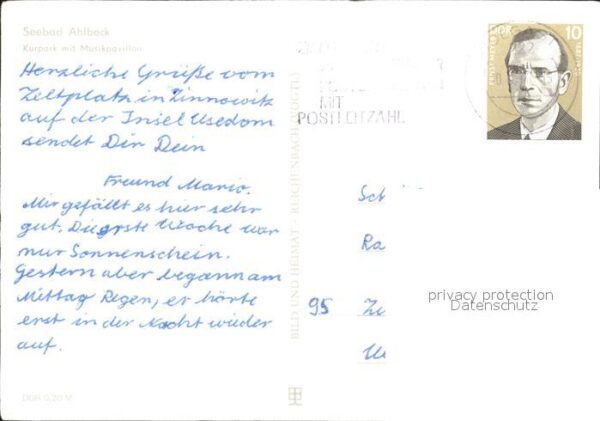 Seebad Ahlbeck
Kurpark mit Musikpavillon
Herzliche Grüße vom
Zeltplatz in Zinnowitz
auf der Insel Usedom
sendet Dir Dein
Freund Mario.
Mir gefällt es hier sehr
gut. Die erste Woche war
nur Sonnenschein.
Gestern aber begann am
Mittag Regen, er hörte
erst in der Nacht wieder
auf.
DDR 0,20 M
BILD UND HEIMAT REICHENBACH (VOGTL)
MIT
POSTLEITZAHL
DDR 10
Sch
Ra
95 Ze
privacy protection
Datenschutz